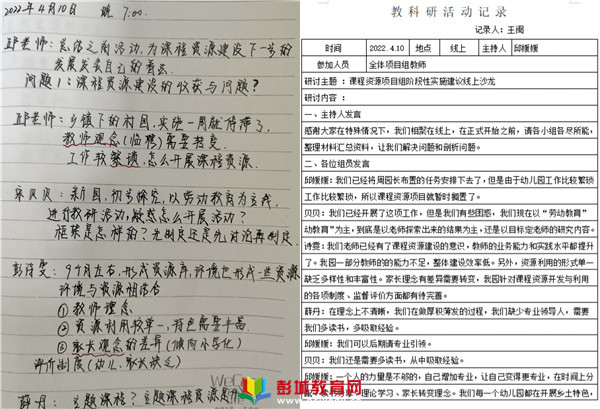 2022年4月10日 晚 7:00.
邱老师：总结之前活动，为课程资源建设下一步的
发展
自己的看法.
问题1：课程资源建设的收获与问题？
邱老师：乡镇下的村园，实施一周就停滞了，
教师观念（临聘）需要转变.
工作较繁琐，怎么开展课程资源.
贝贝：新园，初步探究，以劳动教育为主线，
进行教研活动，怎么开展活动？
框架是怎样的？先制度还是先讨论再制度.
彭诗雯：9个月左右，形成资源库，环境也形成一些资源
环境与资源相结合
① 教师理念
② 资源利用较单一，特色需要丰富
③ 家长观念的差异（倾向小学化）
评价制度（幼儿、家长缺乏）
薛丹：主题课程？主题课程资源
教科研活动记录
记录人：王闽
时间 2022.4.10 地点 线上 主持人 邱媛媛
参加人员 全体项目组教师
研讨主题：课程资源项目组阶段性实施建议线上沙龙
研讨内容：
一、主持人发言
感谢大家在特殊情况下，我们相聚在线上，在正式开始之前，请各小组各尽所能，
整理材料汇总资料，让我们解决问题和剖析问题。
二、各位组员发言
邱媛媛：我们已经将周园长布置的任务安排下去了，但是由于幼儿园工作比较繁琐
工作比较繁琐，所以课程资源项目就暂时搁置了。
贝贝：我们已经开展了这项工作，但是我们有些困惑，我们现在以“劳动教育”
动教育”为主，到底是以老师探索出来的结果为主，还是以目标定老师的研究内容。
诗雯：我们老师已经有了课程资源建设的意识，教师的业务能力和实践水平都提升
了。我园一部分教师的的能力不足，整体建设效率低。另外，资源利用的形式单一
缺乏多样性和丰富性。家长理念有差异需要转变，我园针对课程资源开发与利用
的各项制度、监督评价方面都有待完善。
薛丹：在理念上不清晰，我们在做厚积薄发的过程，我们缺少专业领导人，需要
我们多读书，多吸取经验。
邱媛媛：我们可以后期请专业引领。
贝贝：我们还是需要多读书，从中吸取经验。
邱媛媛：一个人的力量是不够的，自己增加专业，让自己变得更专业，在时间上分
理论学习、家长转变理念。我们每一个幼儿园都在开展乡土特色，
彭城教育网